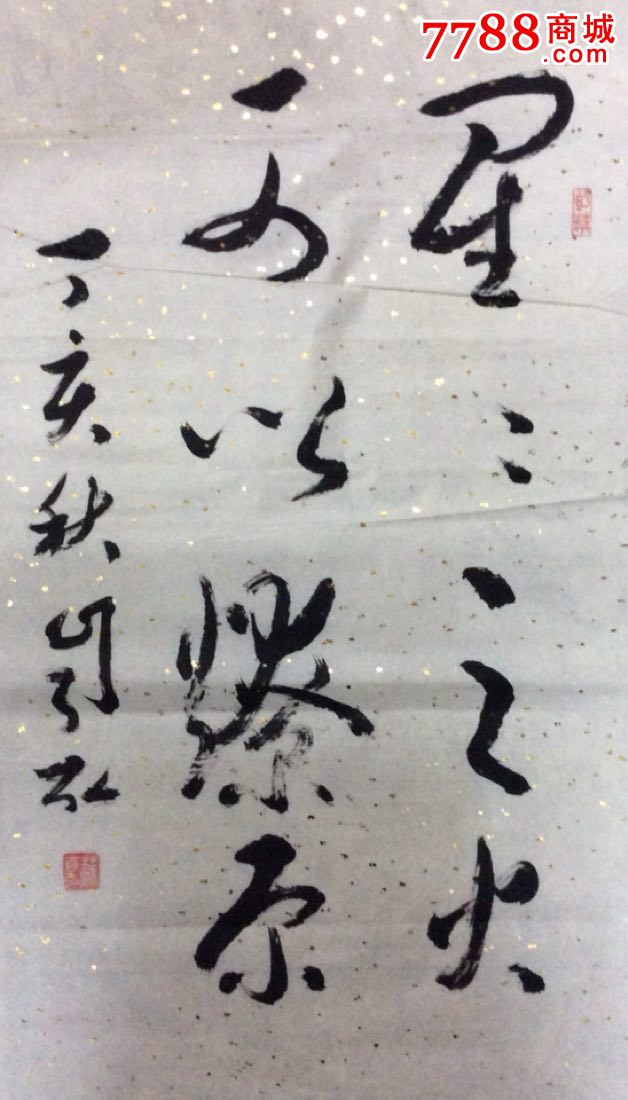 7788商城
.com
星〻之火
可以燎原
丁亥秋